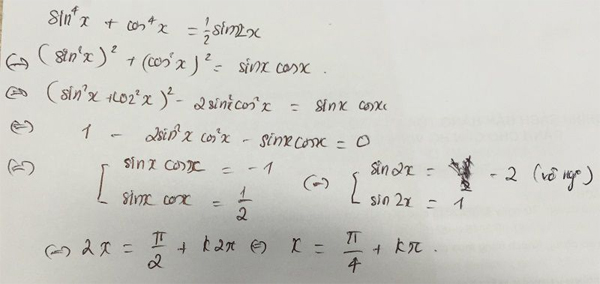 sin⁴x + cos⁴x = 1/2 sin2x
⇔ (sin²x)² + (cos²x)² = sinx cosx.
⇔ (sin²x + cos²x)² - 2sin²cos²x = sinx cosx
⇔ 1 - 2sin²x cos²x - sinx cosx = 0
⇔ [ sinx cosx = -1 ⇔ [ sin2x = -2 (vô ngo)
sinx cosx = 1/2 sin2x = 1
⇔ 2x = π/2 + k2π ⇔ x = π/4 + kπ.